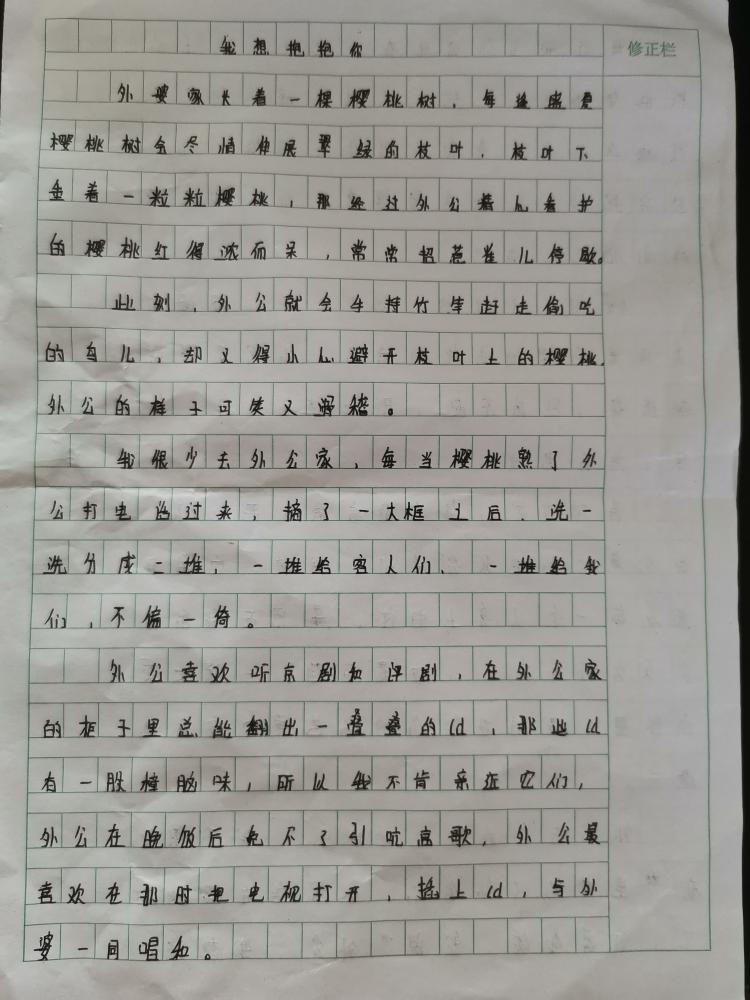 我想抱抱你
修正栏
外婆家长着一棵樱桃树，每逢盛夏
樱桃树会尽情伸展翠绿的枝叶，枝叶下
垂着一粒粒樱桃，那经过外公精心看护
的樱桃红得浓而呆，常常招惹雀儿停歇。
此刻，外公就会手持竹竿赶走偷吃
的鸟儿，却又得小心避开枝叶上的樱桃，
外公的样子可笑又滑稽。
我很少去外公家，每当樱桃熟了外
公打电话过来，摘了一大框之后，洗一
洗分成二堆，一堆给客人们，一堆给我
们，不偏一倚。
外公喜欢听京剧和评剧，在外公家
的柜子里总能翻出一叠叠的Cd，那些Cd
有一股樟脑味，所以我不肯亲近它们，
外公在晚饭后免不了引吭高歌，外公最
喜欢在那时把电视打开，插上Cd，与外
婆一同唱和。